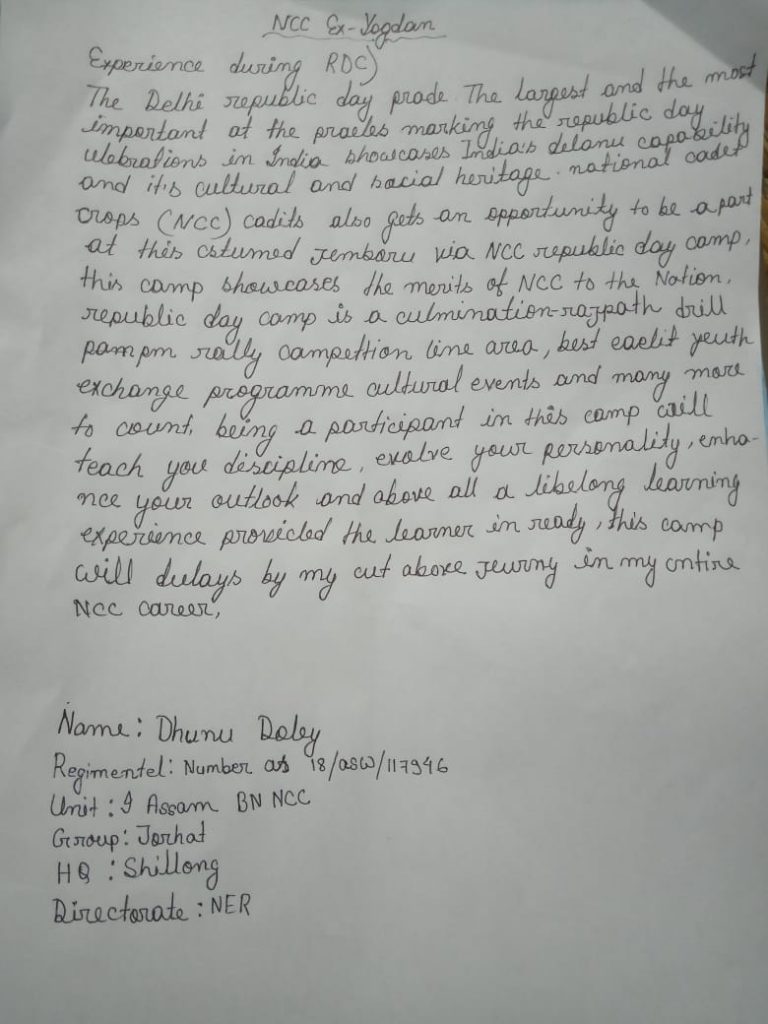 NCC Ex-Yogdan
Experience during RDC)
The Delhi republic day prade The largest and the most
important at the praeles marking the republic day
ulebrations in India showcases India's delanu capability
and it's cultural and sacial heritage. national cadet
crops (NCC) cadits also gets an opportunity to be a part
at this cstumed jemboru via NCC republic day camp,
this camp showcases the merits of NCC to the Nation,
republic day camp is a culmination-rajpath drill
pampm rally campettion line area, best eaelit yeuth
exchange programme cultural events and many more
to count, being a participant in this camp will
teach you discipline, evolve your personality, enha-
nce your outlook and above all a libelong learning
experience provicled the learner in ready, this camp
will dulays by my cut above jeurny in my entire
NCC career,
Name: Dhunu Doley
Regimentel: Number as 18/asw/117946
Unit: I Assam BN NCC
Group: Jorhat
HQ : Shillong
Directorate : NER